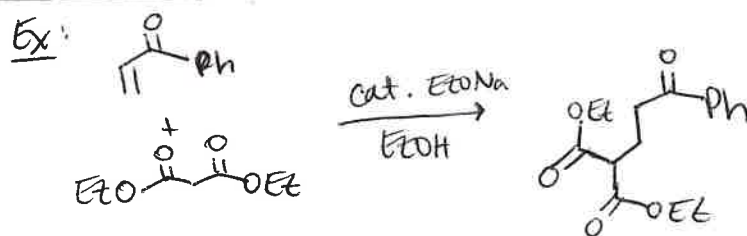 Ex:
O
Ph
+
O O
EtO OEt
cat. EtONa
EtOH
O
OEt Ph
O
O OEt